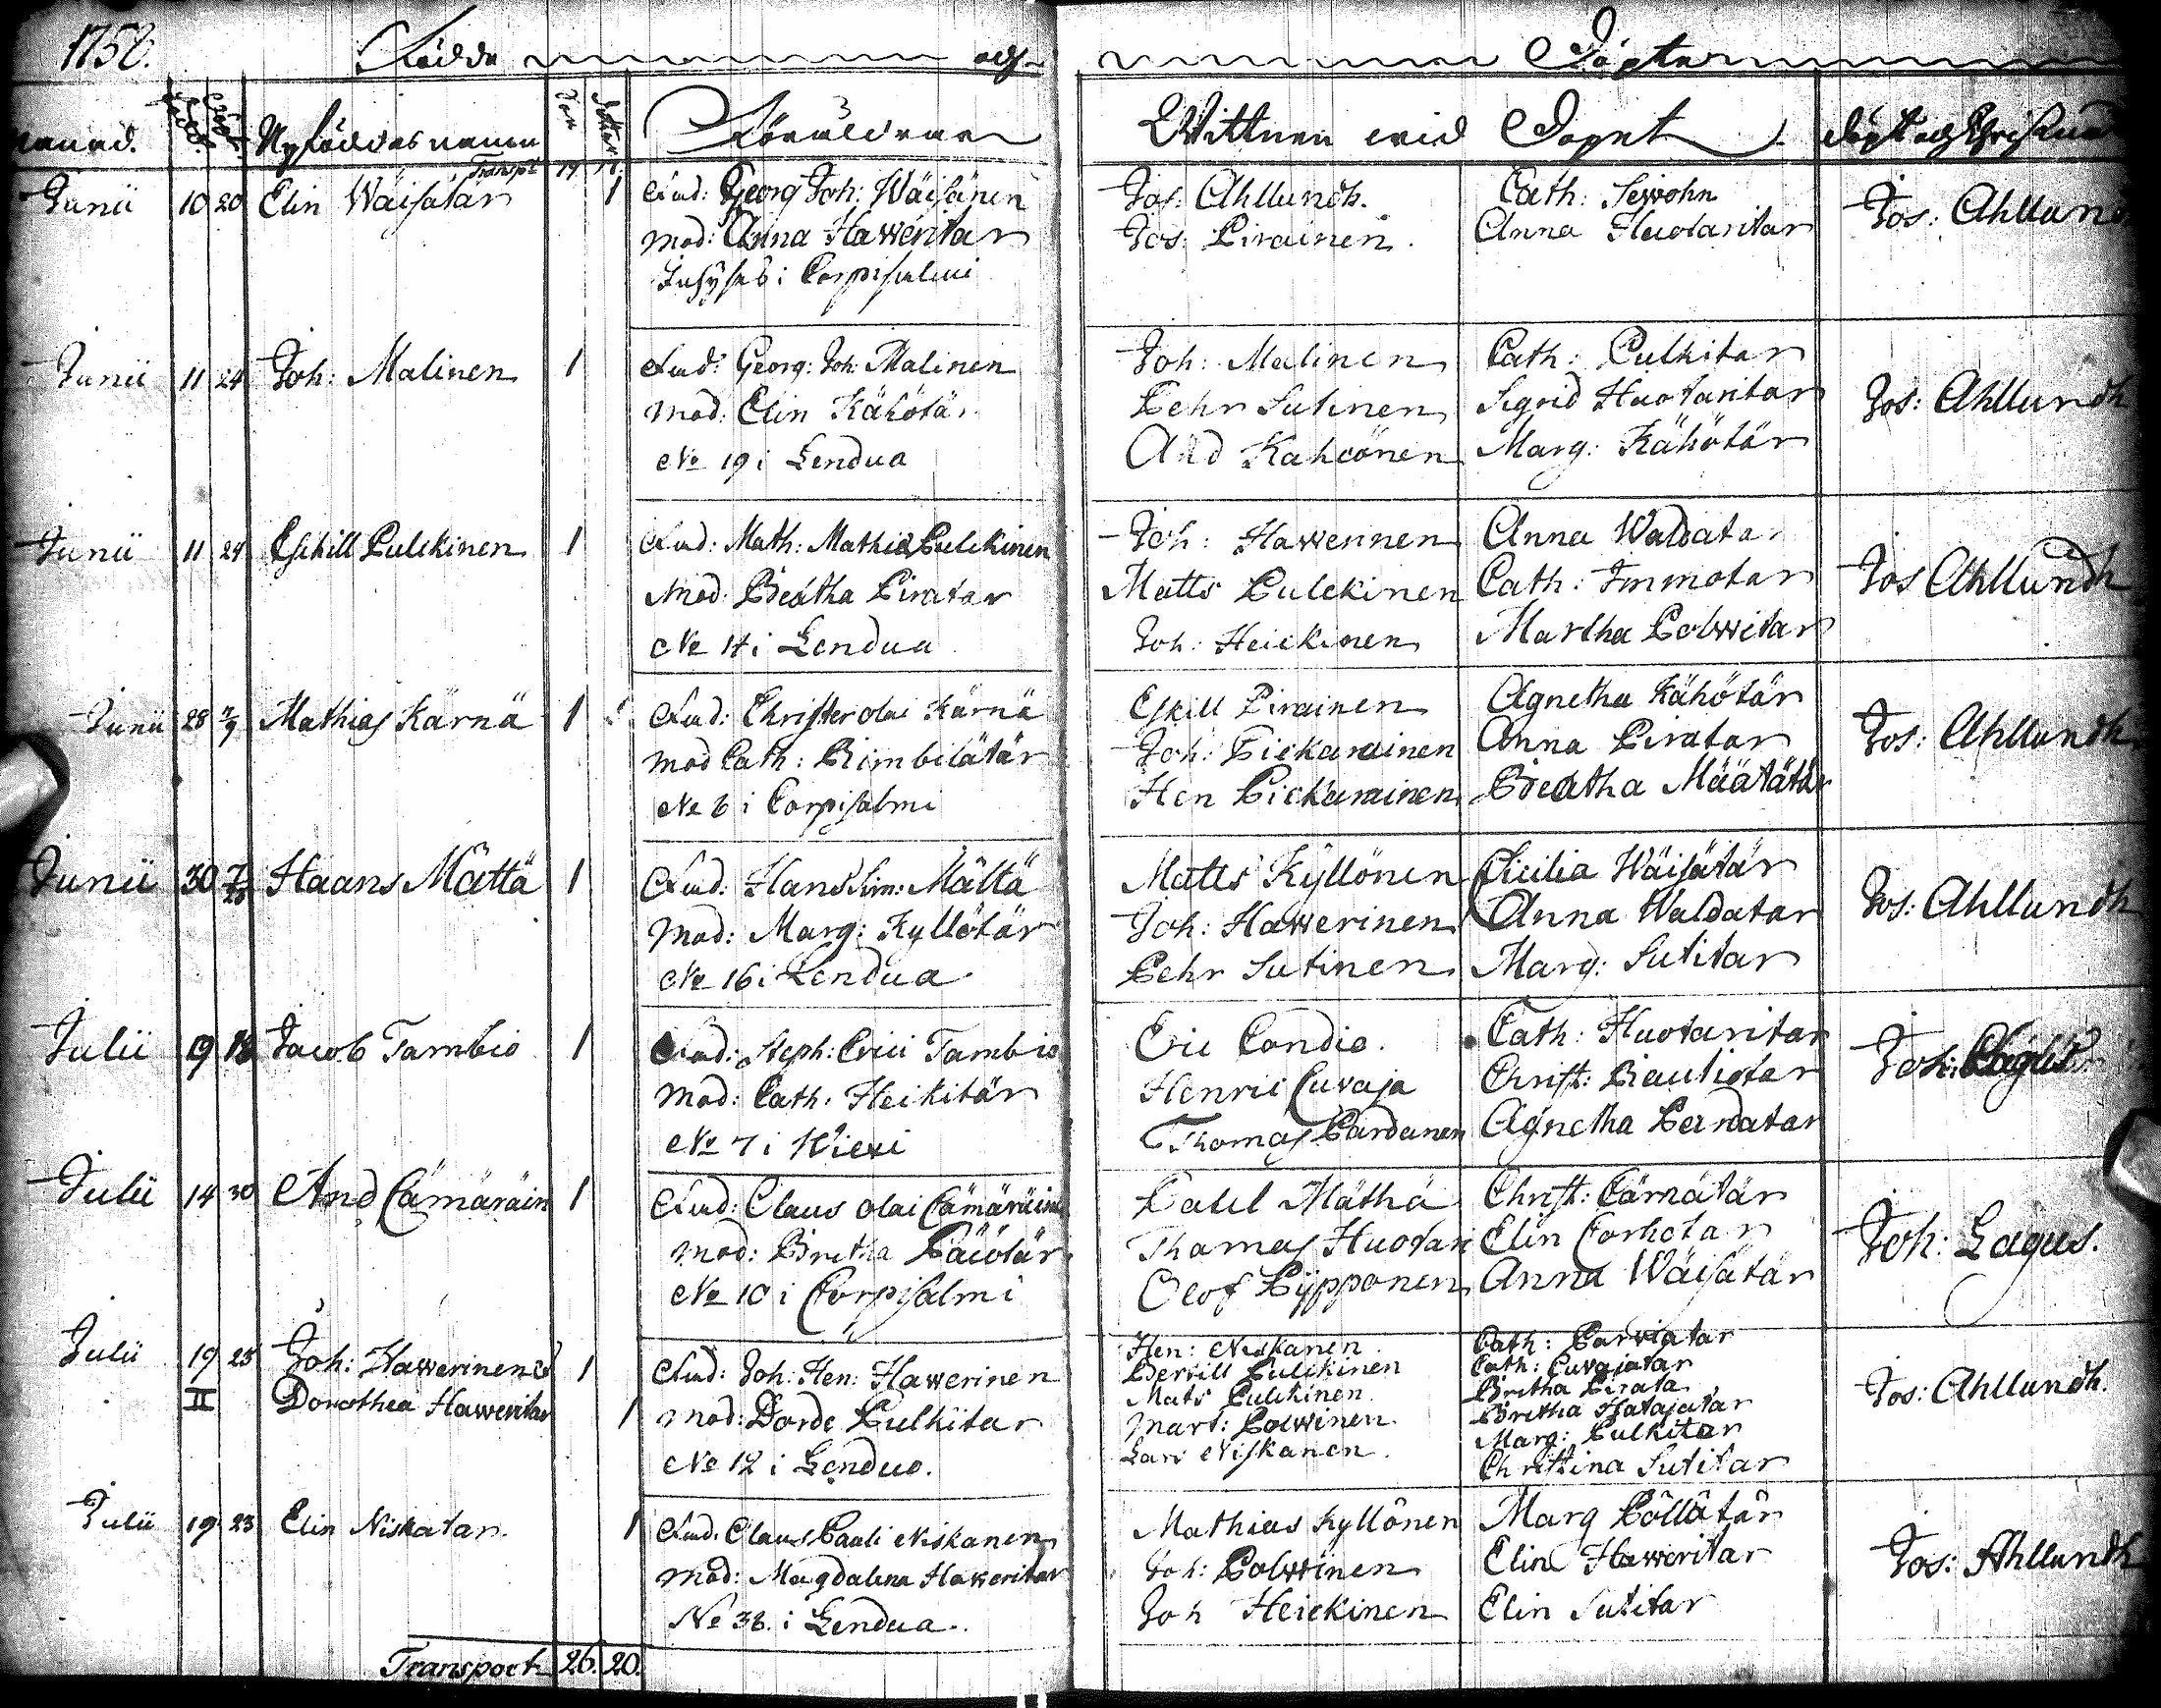 1758. Födde och Döpte
månad. Född Döpt Nyföddas namn Son Dotter Föräldrar Wittnen wid Dopet
Transpt 19. 17.
Junii 10 20 Elin Wäisätär 1 Fad: Georg Joh: Wäisänen Jos: Ahllundh. Cath: Sewohn Jos: Ahllund
Mod: Anna Haweritar Jos: Pirainen. Anna Huotaritar
Inhyses i Corpisalmi
Junii 11 24 Joh: Malinen 1 Fad: Georg: Joh: Malinen Joh: Malinen Cath: Pulkitar Jos: Ahllundh
Mod: Elin Kähötär Pehr Sutinen Sigrid Huotaritar
No 19 i Lendua And Kähönen Marg: Kähötär
Junii 11 24 Eskill Pulckinen 1 Fad: Math: Mathiæ Pulckinen Joh: Hawerinen Anna Waldatar Jos Ahllundh
Mod: Beatha Piratar Matts Pulckinen Cath: Immotar
No 14 i Lendua Joh: Heickinen Martha Polwitar
Junii 28 2/7 Mathias Kärnä 1 Fad: Christer Olai Kärnä Eskill Pirainen Agnetha Kähötär Jos: Ahllundh
Mod Cath: Rimbilätär Joh: Pickarainen Anna Piratar
No 6 i Corpisalmi Hen Pickarainen Beatha Määtätär
Junii 30 Haans Mättä 1 Fad: Hans Sim: Mättä Matts Kyllönen Cicilia Wäisätär Jos: Ahllundh
Mod: Marg: Kyllötär Joh: Hawerinen Anna Waldatar
No 16 i Lendua Pehr Sutinen Marg: Sutitar
Julii 9 18 Jacob Tambio 1 Fad: Steph: Erici Tambio Eric Condio. Cath: Huotaritar Joh: Lagus
Mod: Cath: Heikitär Henric Cuvaja Christ: Riautiotar
No 7 i Wiexi Thomas Pardanen Agnetha Pardatar
Julii 14 30 And Cämäräin 1 Fad: Claus Olai Cämäräinen Pahl Mäthä Christ: Cärnätär Joh: Lagus.
Mod: Bretha Päiötär Thomas Huotari Elin Corhotar
No 10 i Corpisalmi Olof Pypponen Anna Wäisätär
Julii 19 25 Joh: Hawerinen 1 Fad: Joh: Hen: Hawerinen Hen: Niskanen. Cath: Parviatar Jos: Ahllundh.
II Dorothea Haweritar 1 Mod: Dorde Pulkitar Bertill Pulckinen Cath: Cuvajatar
No 12 i Lendua. Mats Pulckinen. Bretha Pirata
Mart: Polwinen. Bretha Hatajatar
Lars Niskanen. Marg: Pulkitar
Christina Sutitar
Julii 19 23 Elin Niskatar. 1 Fad. Claus Pauli Niskanen Mathias Kyllönen Marg Pöllätär Jos: Ahllundh
Mod: Magdalena Haweritar Joh: Polwinen Elin Haweritar
No 38. i Lendua. Joh Heickinen Elin Sutitar
Transport 26. 20.